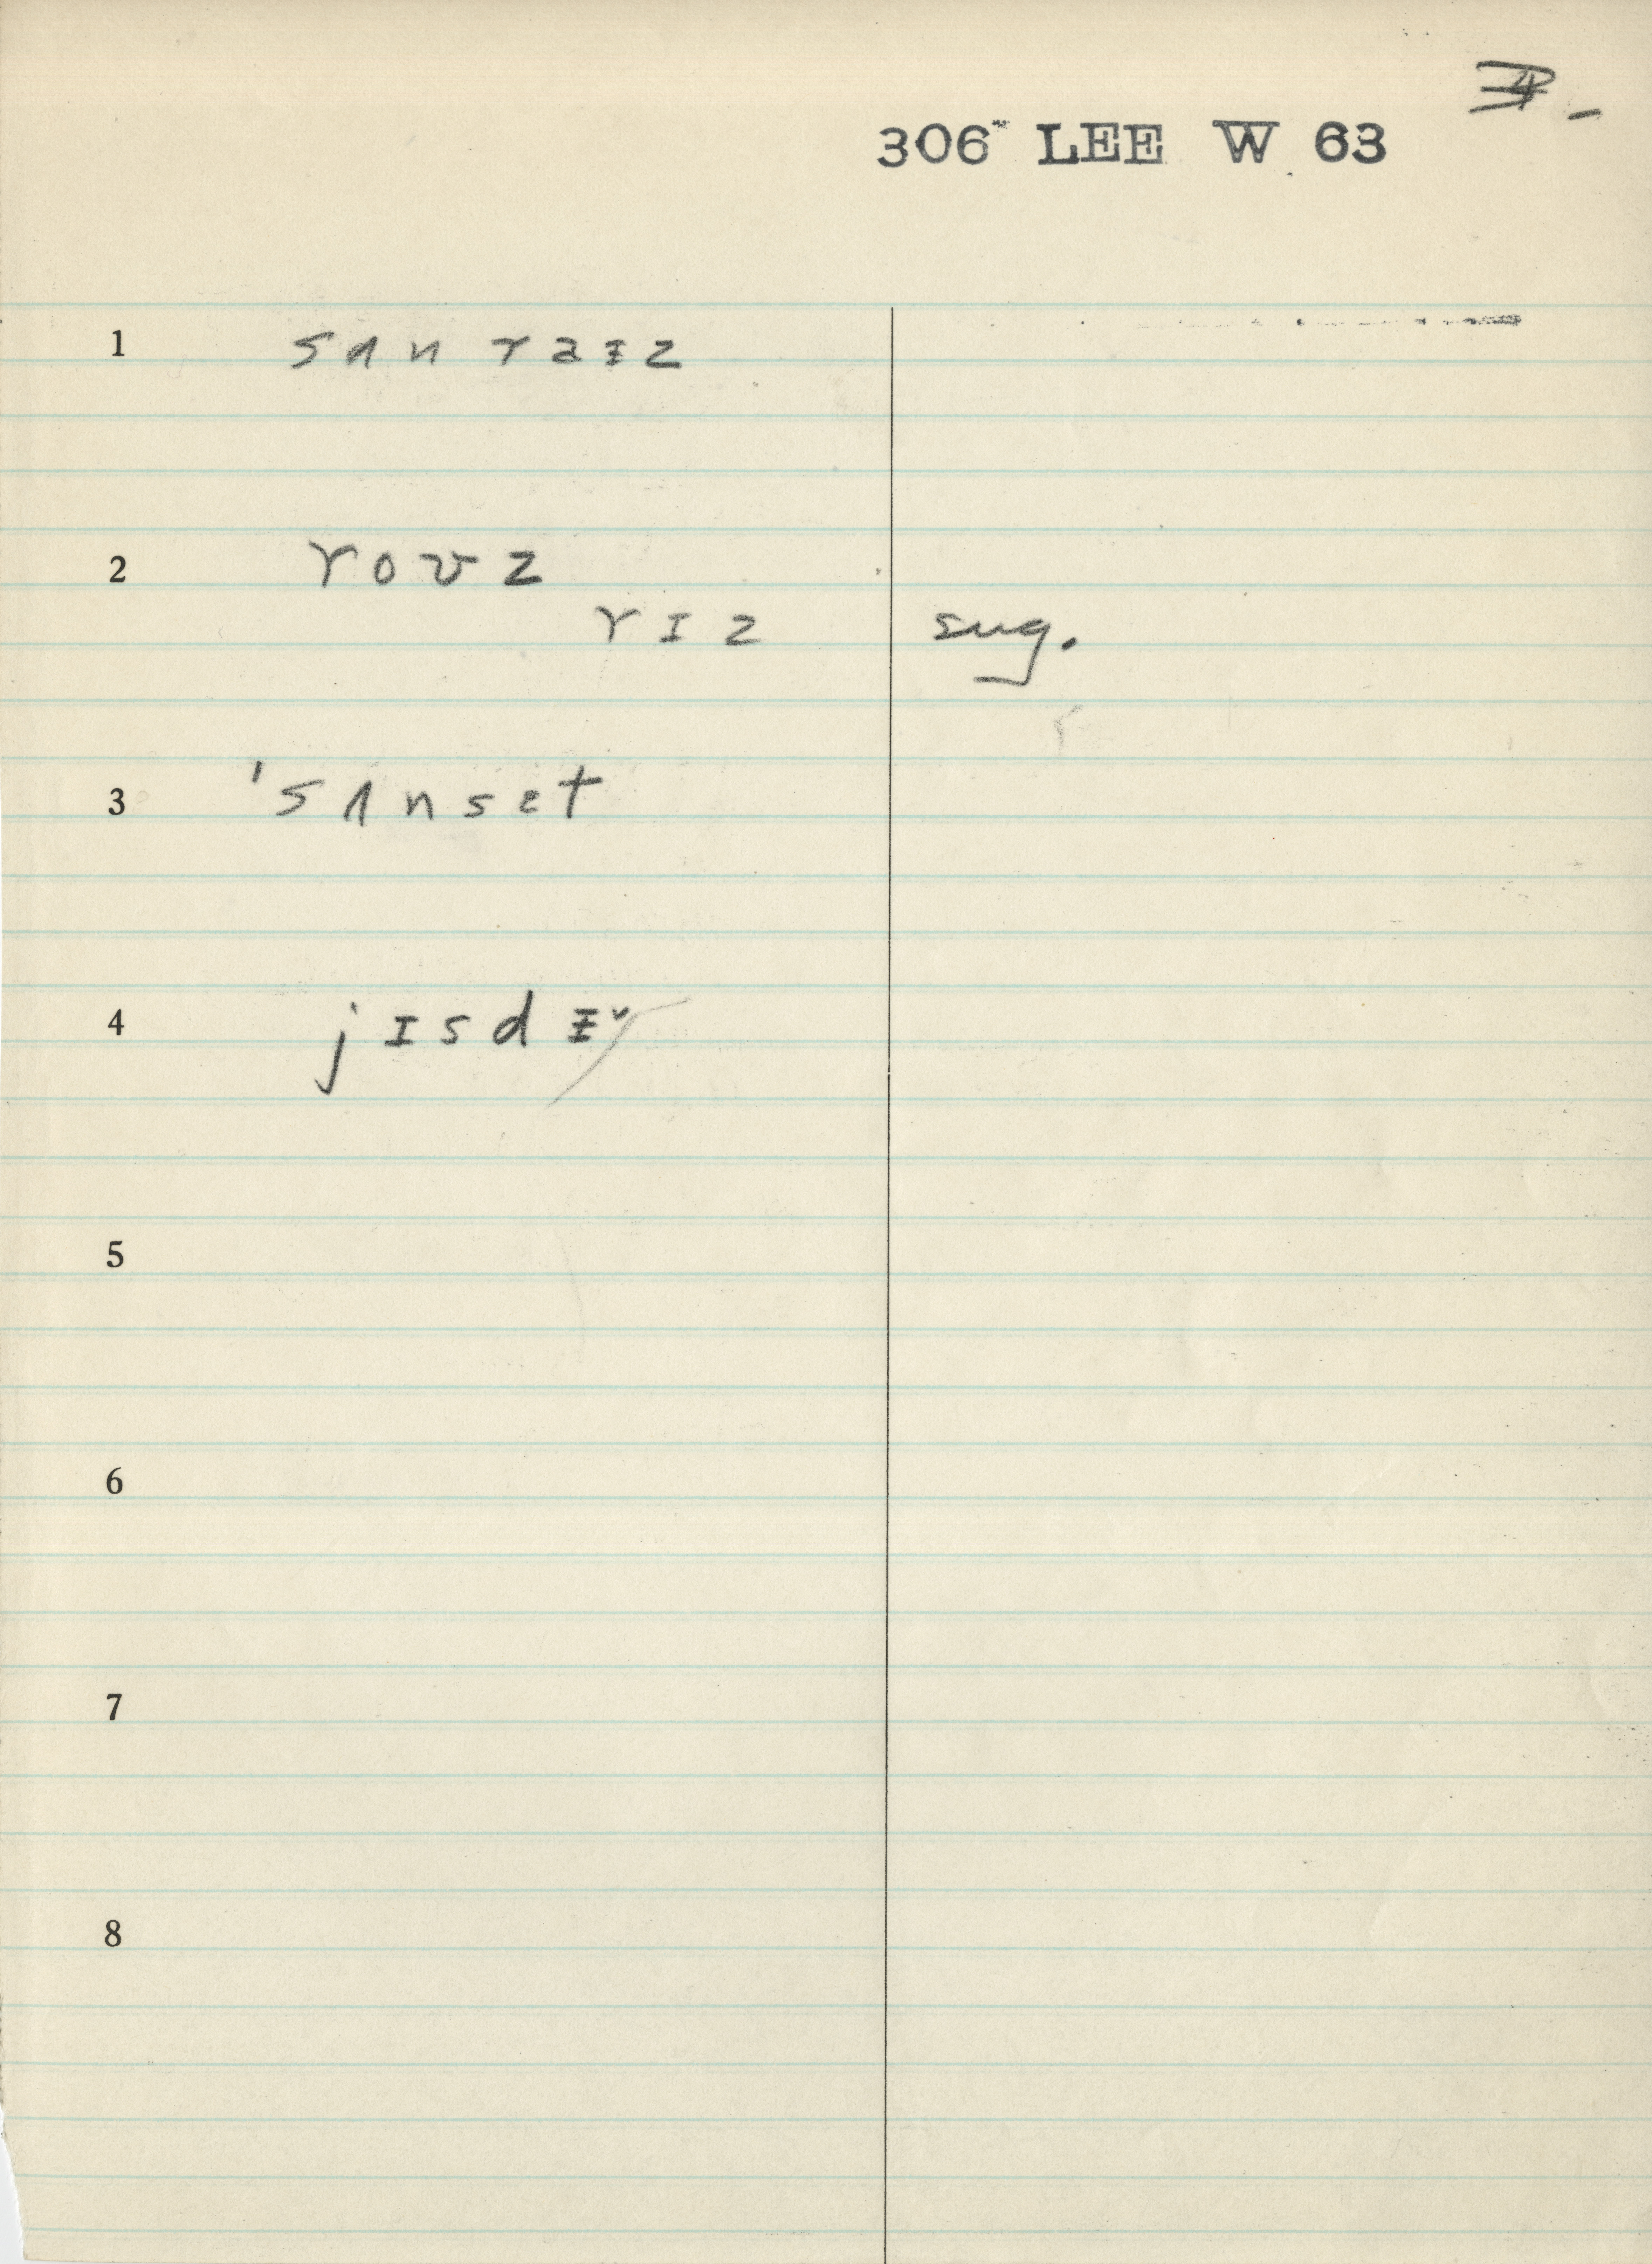 4 -
306 LEE W 63
1 sʌn raᵻz
2 roʊz
rɪz sug.
3 'sʌnset
4 jɪsdᵻ
5
6
7
8